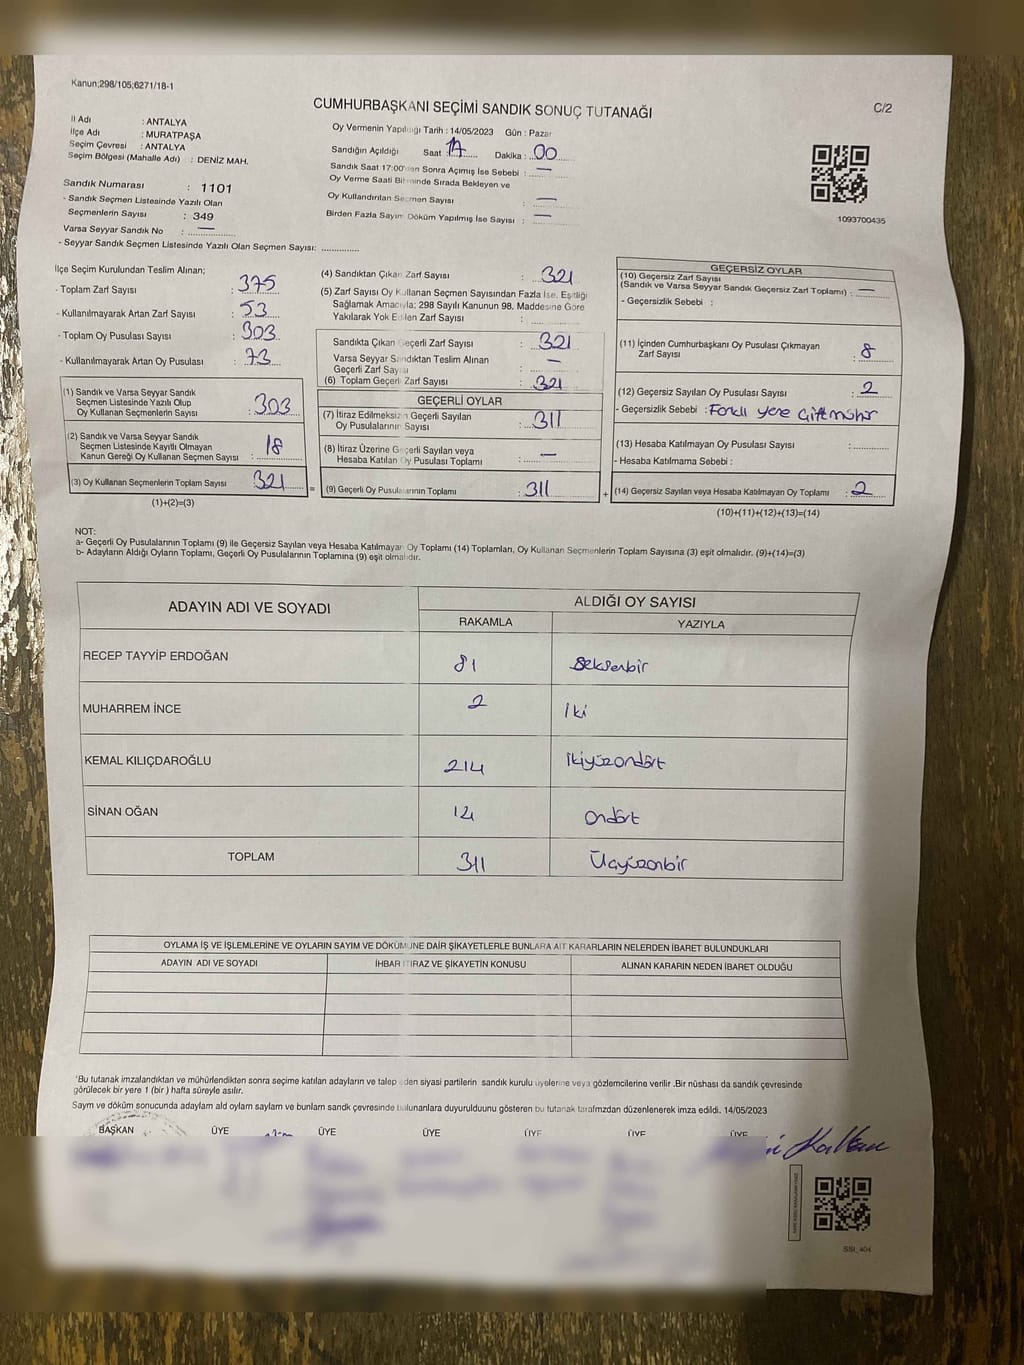 Kanun;298/105;6271/18-1
CUMHURBAŞKANI SEÇİMİ SANDIK SONUÇ TUTANAĞI
C/2
İl Adı : ANTALYA
İlçe Adı : MURATPAŞA
Seçim Çevresi : ANTALYA
Seçim Bölgesi (Mahalle Adı) : DENİZ MAH.
Sandık Numarası : 1101
- Sandık Seçmen Listesinde Yazılı Olan
Seçmenlerin Sayısı : 349
Varsa Seyyar Sandık No : —
- Seyyar Sandık Seçmen Listesinde Yazılı Olan Seçmen Sayısı: ..............
Oy Vermenin Yapıldığı Tarih : 14/05/2023 Gün : Pazar
Sandığın Açıldığı Saat : 17 Dakika : 00
Sandık Saat 17:00'den Sonra Açımış İse Sebebi : —
Oy Verme Saati Bitiminde Sırada Bekleyen ve
Oy Kullandırılan Seçmen Sayısı : —
Birden Fazla Sayım Döküm Yapılmış İse Sayısı : —
1093700435
İlçe Seçim Kurulundan Teslim Alınan;
- Toplam Zarf Sayısı : 375
- Kullanılmayarak Artan Zarf Sayısı : 53
- Toplam Oy Pusulası Sayısı : 303
- Kullanılmayarak Artan Oy Pusulası : 73
(1) Sandık ve Varsa Seyyar Sandık
Seçmen Listesinde Yazılı Olup
Oy Kullanan Seçmenlerin Sayısı : 303
(2) Sandık ve Varsa Seyyar Sandık
Seçmen Listesinde Kayıtlı Olmayan
Kanun Gereği Oy Kullanan Seçmen Sayısı : 18
(3) Oy Kullanan Seçmenlerin Toplam Sayısı : 321
(1)+(2)=(3)
(4) Sandıktan Çıkan Zarf Sayısı : 321
(5) Zarf Sayısı Oy Kullanan Seçmen Sayısından Fazla İse, Eşitliği
Sağlamak Amacıyla; 298 Sayılı Kanunun 98. Maddesine Göre
Yakılarak Yok Edilen Zarf Sayısı : ..............
Sandıkta Çıkan Geçerli Zarf Sayısı : 321
Varsa Seyyar Sandıktan Teslim Alınan
Geçerli Zarf Sayısı : —
(6) Toplam Geçerli Zarf Sayısı : 321
GEÇERLİ OYLAR
(7) İtiraz Edilmeksizin Geçerli Sayılan
Oy Pusulalarının Sayısı : 311
(8) İtiraz Üzerine Geçerli Sayılan veya
Hesaba Katılan Oy Pusulası Toplamı : —
= (9) Geçerli Oy Pusulalarının Toplamı : 311
GEÇERSİZ OYLAR
(10) Geçersiz Zarf Sayısı
(Sandık ve Varsa Seyyar Sandık Geçersiz Zarf Toplamı) : —
- Geçersizlik Sebebi :
(11) İçinden Cumhurbaşkanı Oy Pusulası Çıkmayan
Zarf Sayısı : 8
(12) Geçersiz Sayılan Oy Pusulası Sayısı : 2
- Geçersizlik Sebebi : Farklı yere Çift mühür
(13) Hesaba Katılmayan Oy Pusulası Sayısı : ..............
- Hesaba Katılmama Sebebi :
+ (14) Geçersiz Sayılan veya Hesaba Katılmayan Oy Toplamı : 2
(10)+(11)+(12)+(13)=(14)
NOT:
a- Geçerli Oy Pusulalarının Toplamı (9) ile Geçersiz Sayılan veya Hesaba Katılmayan Oy Toplamı (14) Toplamları, Oy Kullanan Seçmenlerin Toplam Sayısına (3) eşit olmalıdır. (9)+(14)=(3)
b- Adayların Aldığı Oyların Toplamı, Geçerli Oy Pusulalarının Toplamına (9) eşit olmalıdır.
ADAYIN ADI VE SOYADI
ALDIĞI OY SAYISI
RAKAMLA YAZIYLA
RECEP TAYYİP ERDOĞAN 81 Seksenbir
MUHARREM İNCE 2 İki
KEMAL KILIÇDAROĞLU 214 İkiyüzondört
SİNAN OĞAN 14 Ondört
TOPLAM 311 Üçyüzonbir
OYLAMA İŞ VE İŞLEMLERİNE VE OYLARIN SAYIM VE DÖKÜMÜNE DAİR ŞİKAYETLERLE BUNLARA AİT KARARLARIN NELERDEN İBARET BULUNDUKLARI
ADAYIN ADI VE SOYADI İHBAR İTİRAZ VE ŞİKAYETİN KONUSU ALINAN KARARIN NEDEN İBARET OLDUĞU
'Bu tutanak imzalandıktan ve mühürlendikten sonra seçime katılan adayların ve talep eden siyasi partilerin sandık kurulu üyelerine veya gözlemcilerine verilir .Bir nüshası da sandık çevresinde
görülecek bir yere 1 (bir ) hafta süreyle asılır.
Sayım ve döküm sonucunda adaylam ald oylam saylam ve bunlam sandk çevresinde bulunanlara duyurulduunu gösteren bu tutanak tarafmzdan düzenlenerek imza edildi. 14/05/2023
BAŞKAN ÜYE ÜYE ÜYE ÜYE ÜYE ÜYE
SSI_404